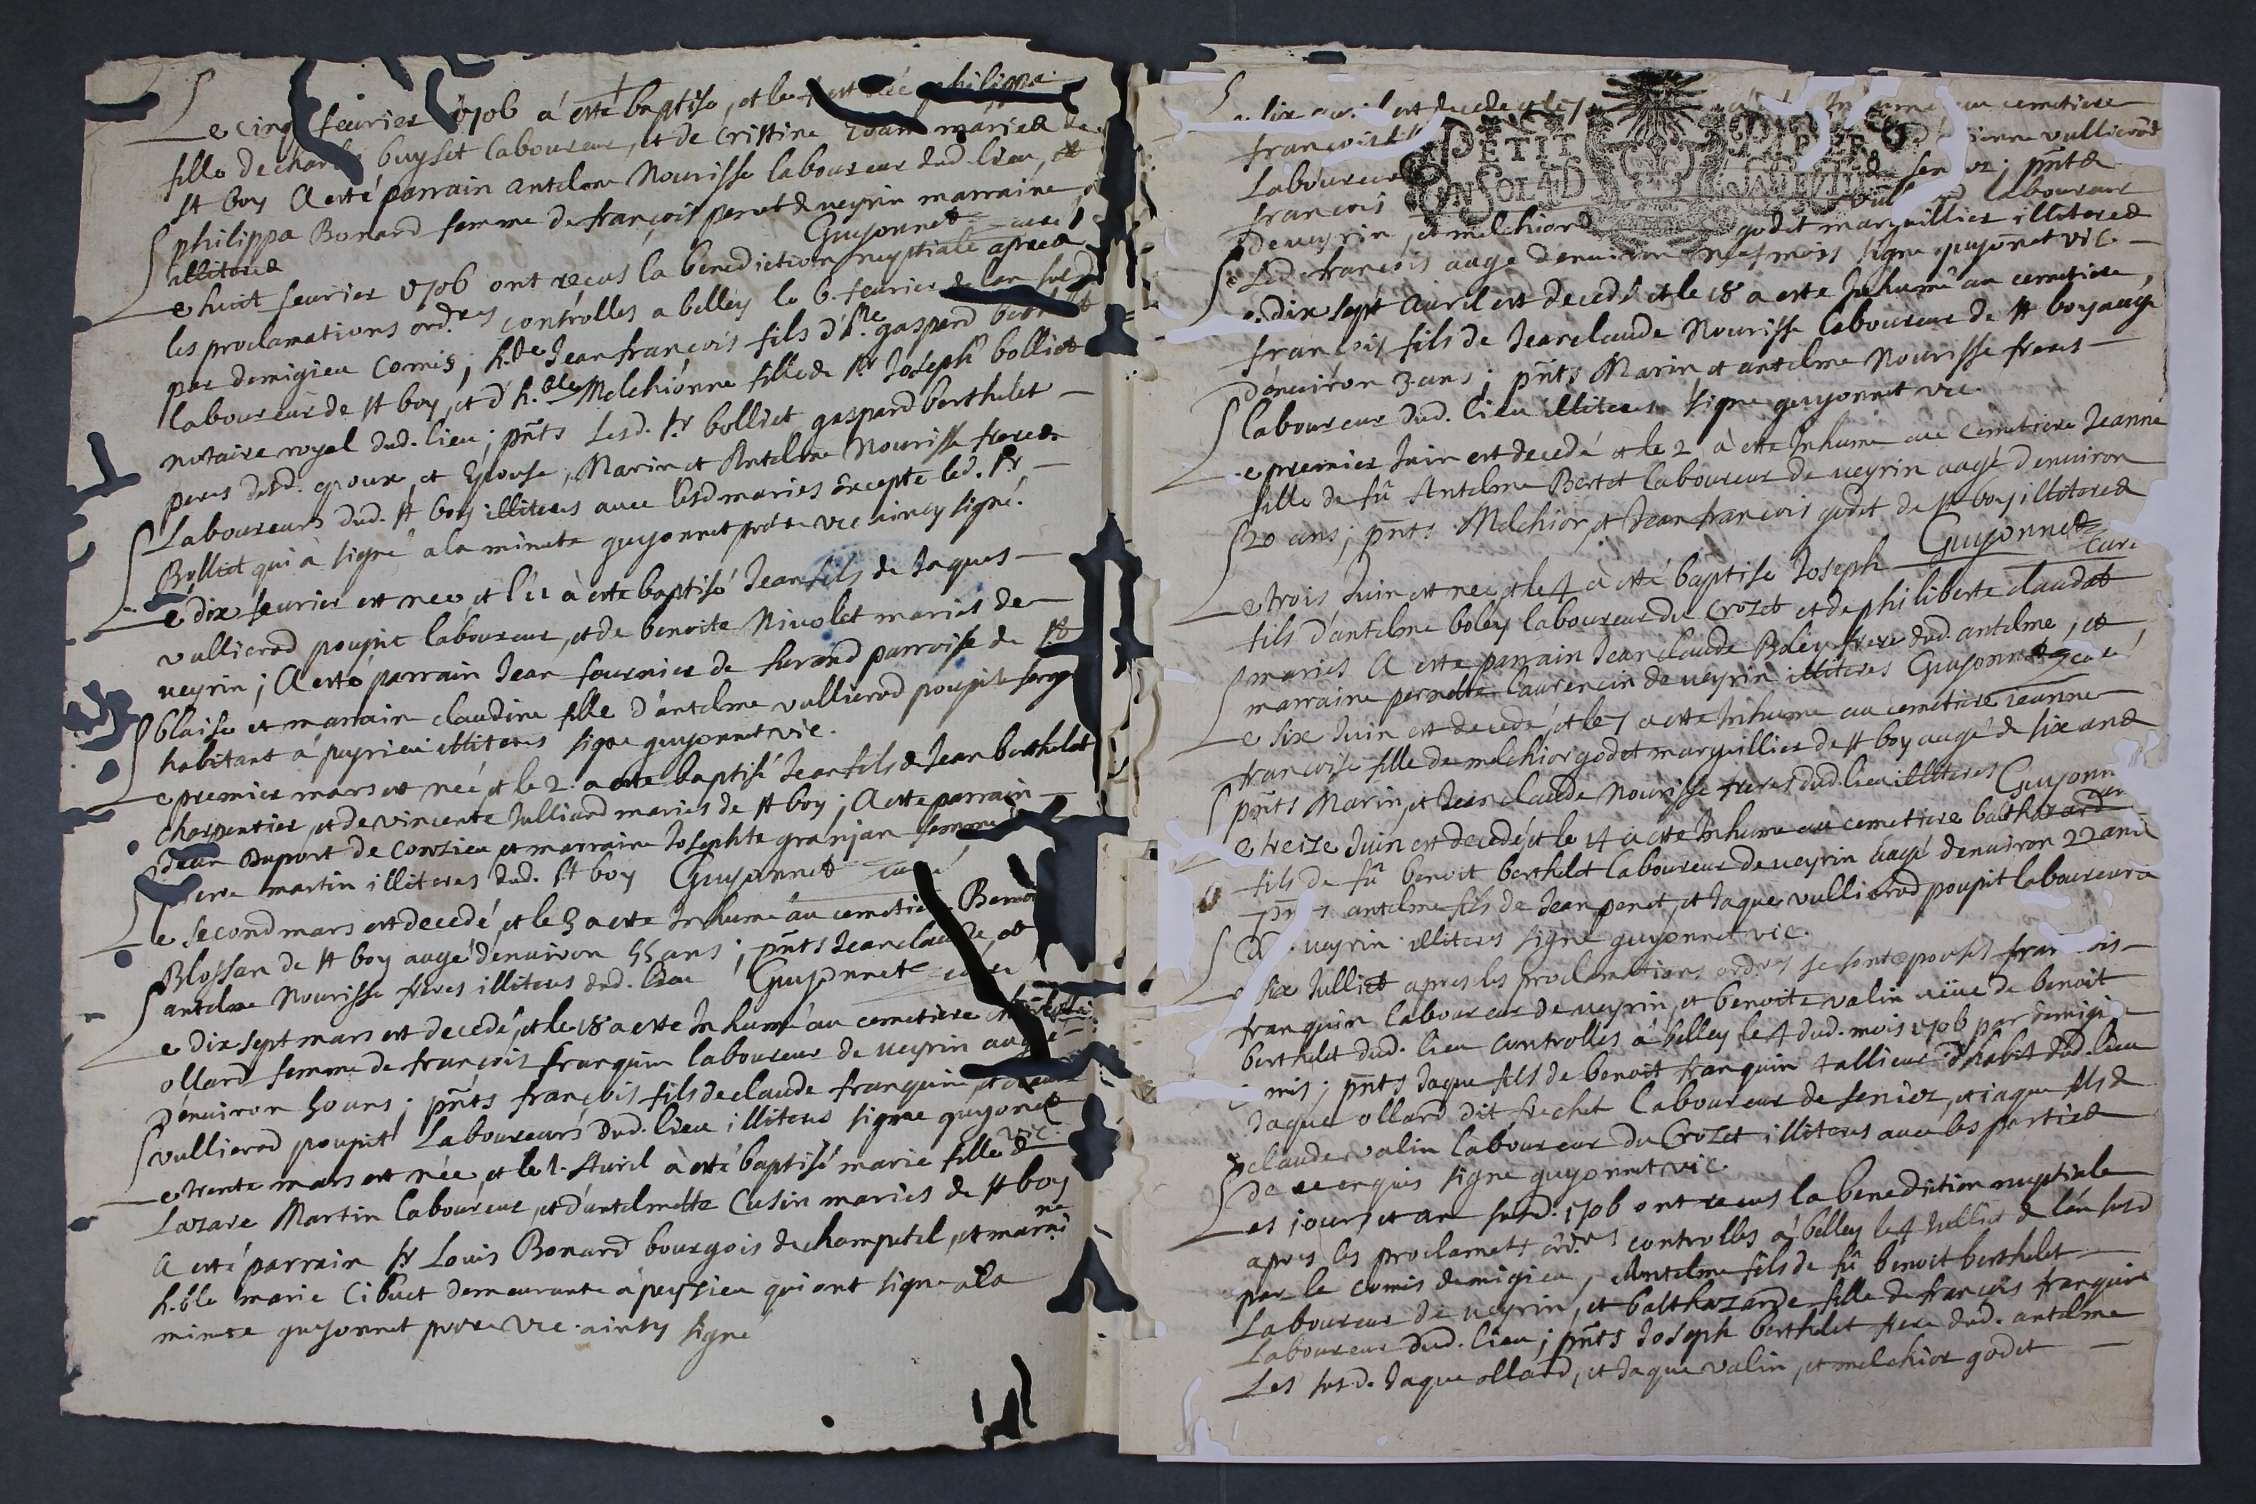 Le cinq feurier 1706 à esté baptise, et le 4 est née philippa
fille de charle buyset laboureur, et de cristine mariea de
st boy A esté parrain antelme Nourisse laboureur dud. lieu, et
philippa Bonard femme de françois peret de ueyrin marraine
illiterea Guyonnet curé
Le huit feurier 1706 ont reçus la benediction nuptiale aprea
les proclamations ord.res controlles a belley le 6. feurier de lan susd
par demigieu comis; h.te Jean françois fils d'h.te gaspard berthelet
laboureur de st boy, et d'h.ble Melchionne fille de sr Joseph bolliet
notaire royal dud. lieu; pñts lesd. sr bolliet gaspard berthelet
peres desd. epoux, et Epouse, Marin et Antelme Nourisse frerea
Laboureurs dud. st boy illiteres auec lesd maries excepte led. sr
Bolliet qui à signé a la minute guyonnet pretre vic aincy signé.
Le dix feurier est neé, et l'11 à esté baptisé Jean fils de Jaques
vullierod poupit laboureur, et de benoite Niuolet maries de
ueyrin; A esté parrain Jean fournier de parroisse de st
blaise et marraine claudine fille d'antelme vullierod poupit
habitant à peyrieu illiteres signe guyonnet vic.
Le premier mars est né et le 2. a esté baptisé Jean fils de Jean berthelet
charpentier, et de vincente Julliand maries de st boy; A esté parrain
Jean Duport de conzieu et marraine Josephte granjan femme
pierre martin illiteres dud. st boy Guyonnet curé
Le second mars est decedé, et le 3 a esté Inhumé au cemetiere
Blossan de st boy augé d'enuiron 55 ans; pñts Jean claude, et
antelme Nourisse freres illiteres dud. lieu Guyonnet curé
Le dix sept mars est decedé, et le 18 a esté Inhumé au cemetiere
ollard femme de françois franquin laboureur de ueyrin augée
d'enuiron 50 ans; pñts françois fils de claude franquin, et
vullierod poupit Laboureurs dud. lieu illiteres signe guyonet
vic.
Le trente mars est née, et le 1. Auril à esté baptisé marie fille de
Lazare Martin laboureur, et d'antelmette Cusin maries de st boy
A esté parrain sr Louis Bonard bourgois de champtel, et marr.ne
h.ble marie Cibuet demeurante à peyzieu qui ont signe a la
minute guyonnet pretre vic. ainsy signé
Le six auril est decede et le 7 Inhumé au cemetiere
françois vullierod
Laboureur pñtea
françois laboureur
de ueyrin, et melchiord godet marguillier illiterea
Led. françois augé d'enuiron mois signe guyonet vic
Le dix sept auril est decedé et le 18 a esté Inhumé au cemetiere,
françois fils de Jean claude Nourisse laboureur de st boy augé
d'enuiron 3. ans; pñts Marin et antelme Nourisse freres
laboureur dud. lieu illiteres signe guyonnet vic
Le premier Juin est decedé et le 2 à esté Inhumé au cemetiere Jeanne
fille de fû Antelme Bertet laboureur de ueyrin augé d'enuiron
20 ans; pñts Melchior, et Jean françois godet de st boy illiterea
Guyonnet
Curé
Le trois Juin est neé et le 4 à esté baptisé Joseph
fils d'antelme boley laboureur du crozet et de philiberte claudet
maries A esté parrain Jean claude Boley frere dud. antelme, et
marraine pernette laurencin de ueyrin illiteres Guyonnet curé
Le six Juin est decedé, et le 7 a esté Inhumé au cemetiere Jeanne
françoise fille de melchior godet marguillier de st boy augé de six anea
pñts Marin, et Jean claude Nourisse freres dud. lieu illiteres Guyonn
Le treize Juin est decedé, et le 14 à esté Inhumé au cemetiere balthazard
fils de fû benoit berthelet laboureur de ueyrin augé d'enuiron 22 ans
pñts antelme fils de Jean penet, et Jaques vullierod poupit laboureurs
de ueyrin illiteres signe guyonnet vic.
Le six Julliet apres les proclamations ord.res se sont epousés françois
franquin laboureur de ueyrin, et benoite valin ueüe de benoit
berthelet dud. lieu controlles à belley le 4 dud. mois 1706 par demigieu
comis; pñts Jaque fils de benoit franquin tallieur d'habit dud. lieu
Jaque ollard dit frechet Laboureur de seniez, et Jaque fils de
claude valin laboureur du Crozet illiteres auec les partiea
de ce enquis signe guyonnet vic.
Les jour, et an susd. 1706 ont receus la benediction nuptiale
apres les proclamat.s ord.res controlles à belley le 4 Julliet de l'an susd
par le comis demigieu, Antelme fils de fû benoit berthelet
Laboureur de ueyrin, et balthazarde fille de françois franquin
Laboureur dud. lieu; pñts Joseph berthelet frere dud. antelme
Les susd. Jaque ollard, et Jaque valin, et melchior godet